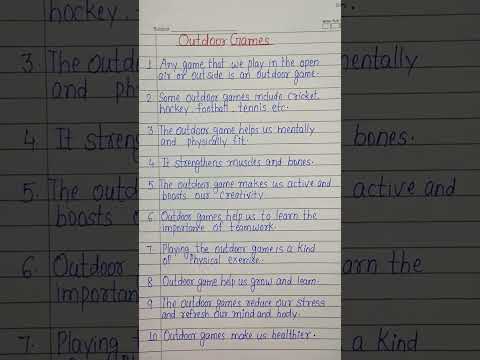 Outdoor Games
1 Any game that we play in the open
air or outside is an outdoor game.
2 Some outdoor games include cricket,
hockey, football, tennis etc.
3 The outdoor game helps us mentally
and physically fit.
4 It strengthens muscles and bones.
5 The outdoor game makes us active and
boosts our creativity
6 Outdoor games help us to learn the
importance of teamwork.
7 Playing the outdoor game is a kind
of physical exercise.
8 Outdoor game help us grow and learn.
9 The outdoor games reduce our stress
and refresh our mind and body.
10 Outdoor games make us healthier.